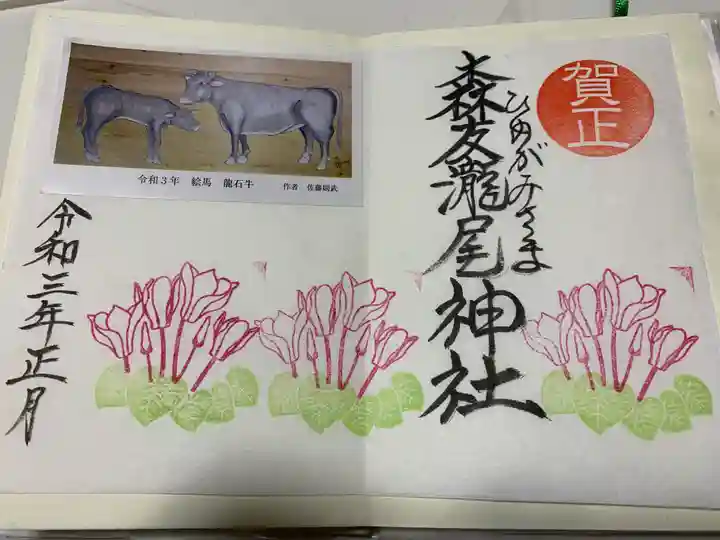 賀正
ひめがみさま
森友瀧尾神社
令和3年 絵馬 龍石牛 作者 佐藤國武
令和三年正月